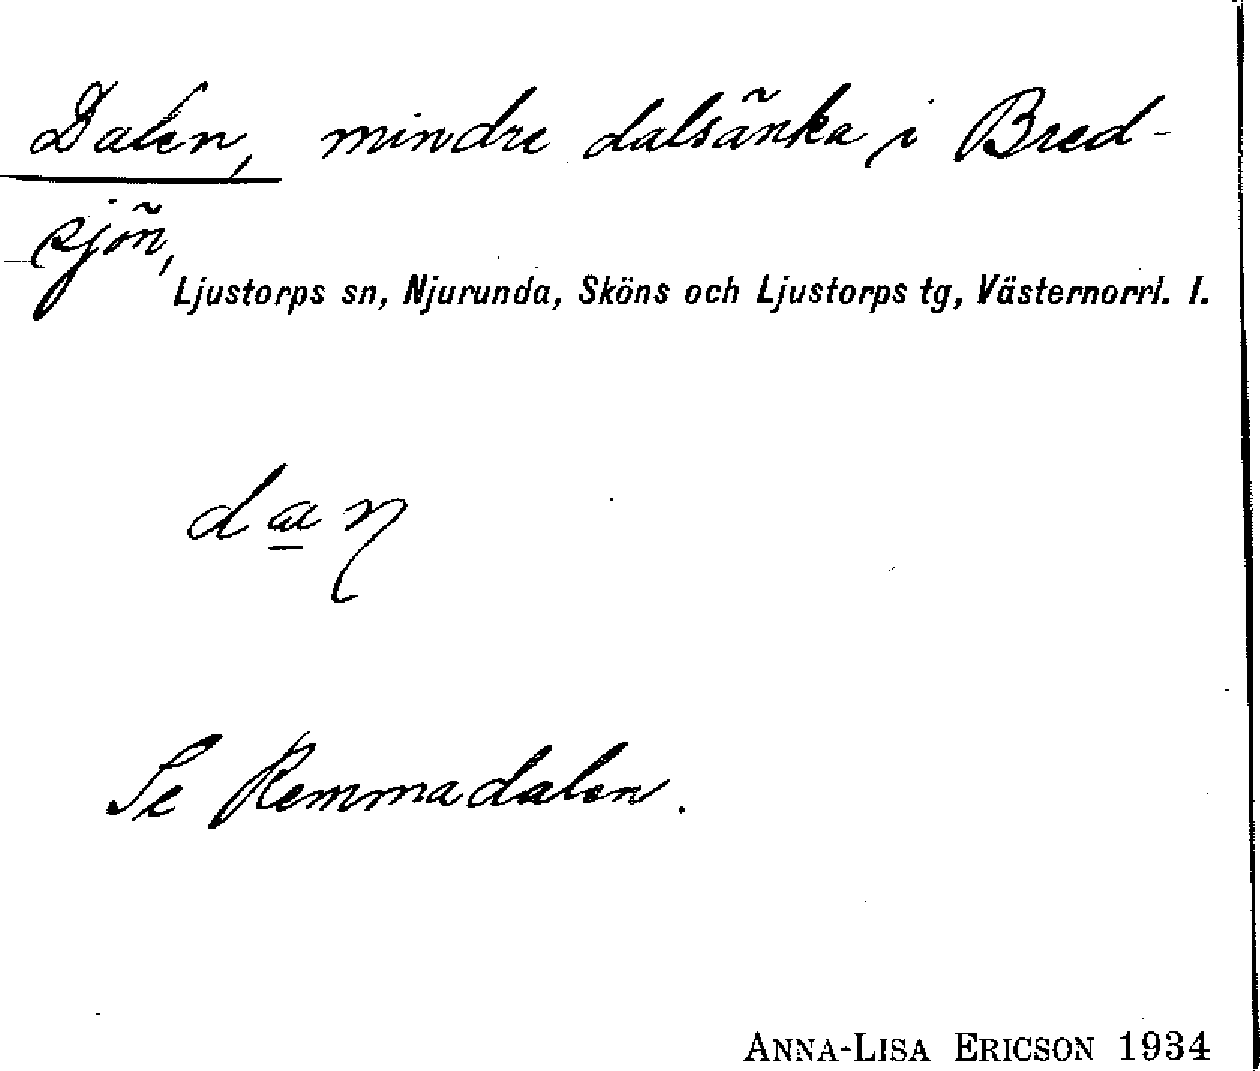 Dalen, mindre dalsänka i Bred-
sjön,
Ljustorps sn, Njurunda, Sköns och Ljustorps tg, Västernorrl. l.
dan
Se Remmadalen.
ANNA-LISA ERICSON 1934